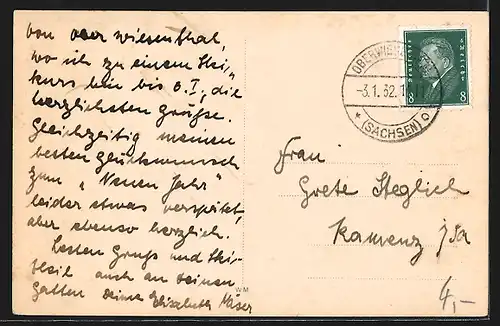 Von Oberwiesenthal,
wo ich zu einem Ski-
kurs bin bis 8. I., die
herzlichsten Grüsse.
Gleichzeitig meinen
besten Glückwunsch
zum „Neuen Jahr"
leider etwas verspätet,
aber ebenso herzlich.
Besten Gruss und Ski-
heil auch an Deinen
Gatten Deine Elisabeth
WM
OBERWIESENTHAL
-3.1.32.
* (SACHSEN) o
8 8
Frau
Grete Steglich
Kamenz i/Sa
4,-